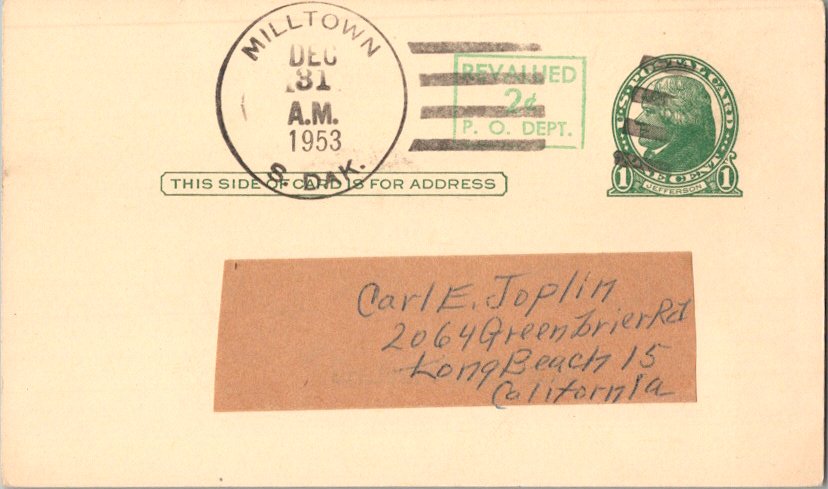 MILLTOWN
DEC
31
A.M.
1953
S. DAK.
REVALUED
2¢
P. O. DEPT.
U.S. POSTAL CARD
1 ONE CENT 1
JEFFERSON
THIS SIDE OF CARD IS FOR ADDRESS
Carl E. Joplin
2064 Greenbrier Rd
Long Beach 15
California